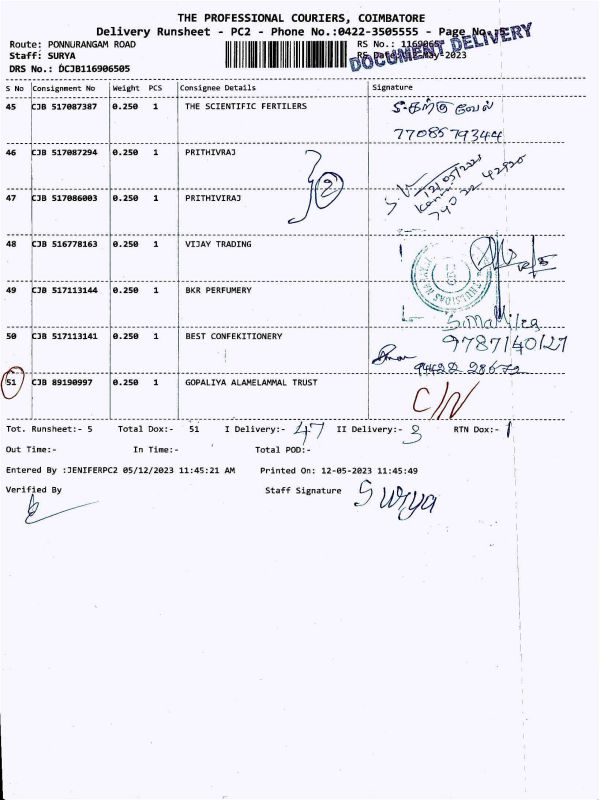 THE PROFESSIONAL COURIERS, COIMBATORE
Delivery Runsheet - PC2 - Phone No.:0422-3505555 - Page No.:5
Route: PONNURANGAM ROAD
Staff: SURYA
DRS No.: DCJB116906505
RS No.: 1169065
RS Date: 12-May-2023
DOCUMENT DELIVERY
S No Consignment No Weight PCS Consignee Details Signature
45 CJB 517087387 0.250 1 THE SCIENTIFIC FERTILERS
7708579344
46 CJB 517087294 0.250 1 PRITHIVRAJ
2
47 CJB 517086003 0.250 1 PRITHIVIRAJ
48 CJB 516778163 0.250 1 VIJAY TRADING
49 CJB 517113144 0.250 1 BKR PERFUMERY
50 CJB 517113141 0.250 1 BEST CONFEKITIONERY
9787140127
51 CJB 89190997 0.250 1 GOPALIYA ALAMELAMMAL TRUST
C/N
Tot. Runsheet:- 5 Total Dox:- 51 I Delivery:- 47 II Delivery:- 3 RTN Dox:- 1
Out Time:- In Time:- Total POD:-
Entered By :JENIFERPC2 05/12/2023 11:45:21 AM Printed On: 12-05-2023 11:45:49
Verified By Staff Signature Surya